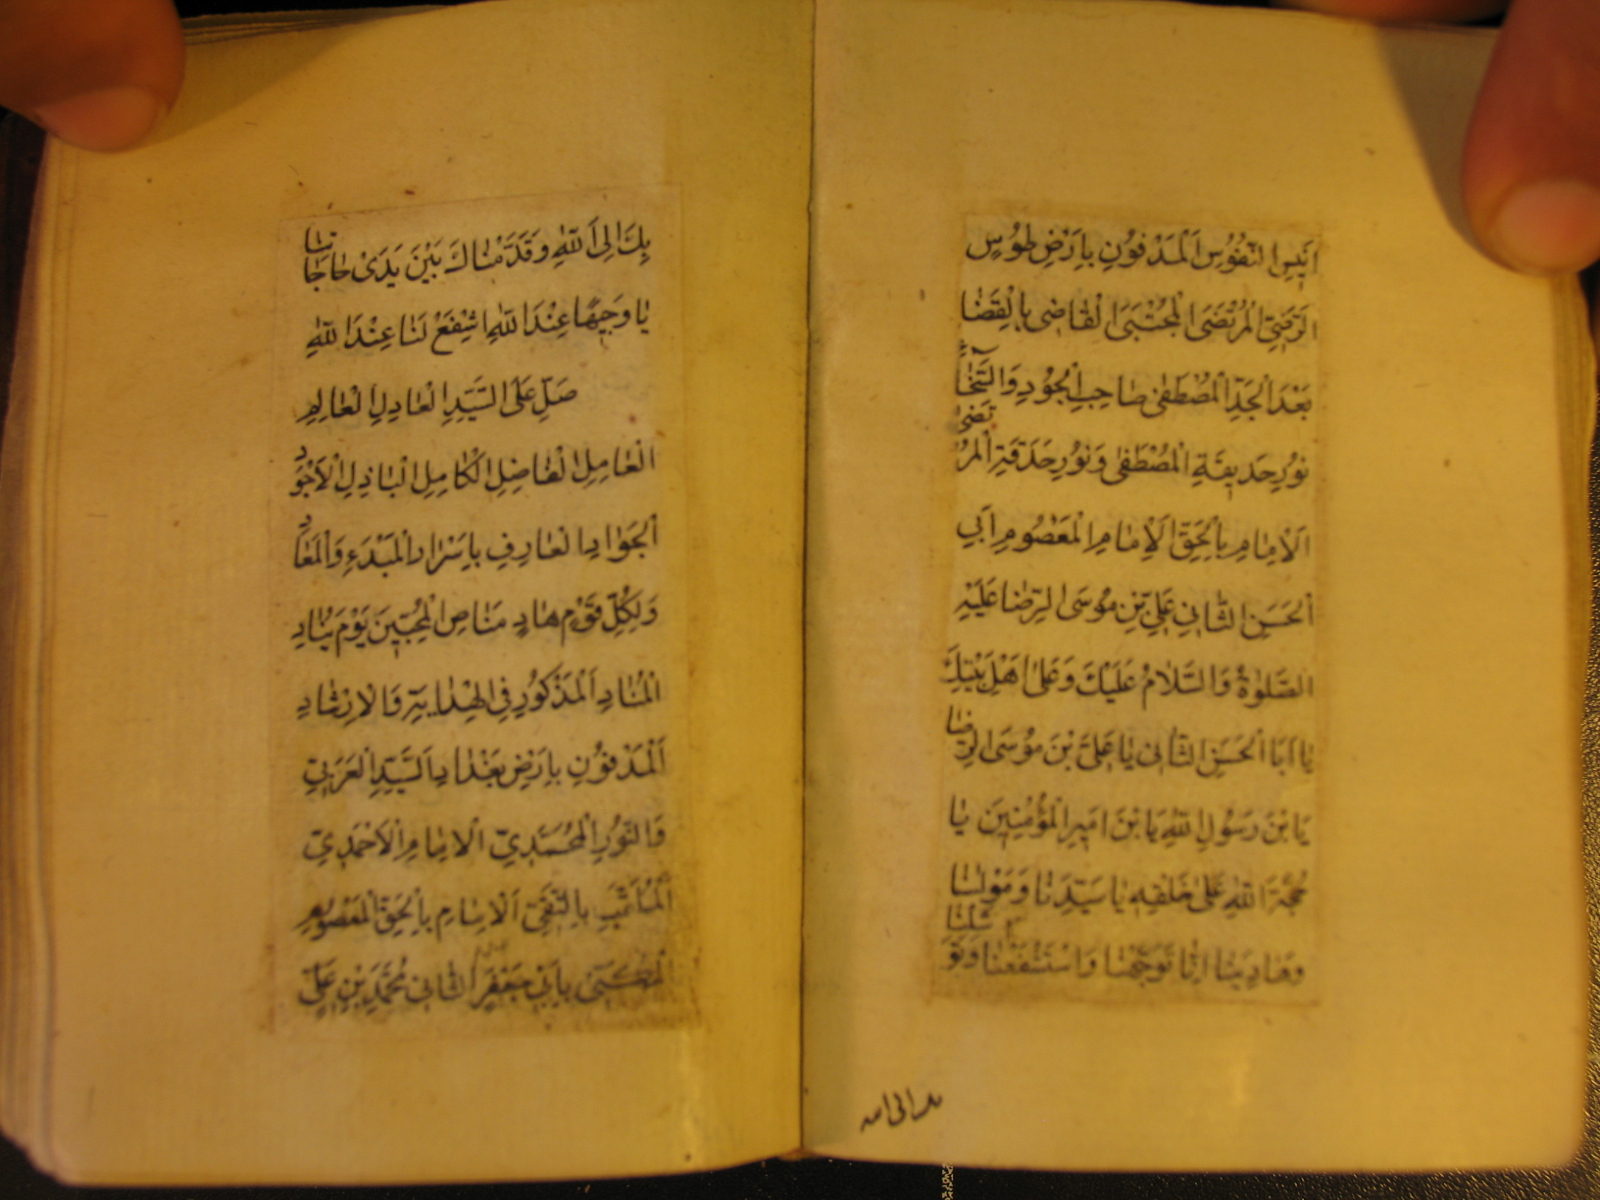 اَنِيسِ النُّفُوسِ اَلْمَدْفُونِ بِاَرْضِ طُوسٍ
الرَّضِيِّ الْمُرْتَضَى الْمُجْتَبَى الْقَاضِي بِالْقَضَا
بَعْدَ الْجَدِّ الْمُصْطَفٰى صَاحِبِ الْجُودِ وَالسَّخَا
نُورِ حَدِيقَةِ الْمُصْطَفٰى وَنُورِ حَدَقَةِ الْمُرْتَضٰى
اَلْاِمَامِ بِالْحَقِّ اَلْاِمَامِ الْمَعْصُومِ اَبِي
الْحَسَنِ الثَّانِي عَلِيِّ بْنِ مُوسَى الرِّضَا عَلَيْهِ
الصَّلٰوةُ وَالسَّلَامُ عَلَيْكَ وَعَلٰى اَهْلِ بَيْتِكَ
يَا اَبَا الْحَسَنِ الثَّانِي يَا عَلِيَّ بْنَ مُوسَى الرِّضَا
يَا بْنَ رَسُولِ اللّٰهِ يَا بْنَ اَمِيرِ الْمُؤْمِنِينَ يَا
حُجَّةَ اللّٰهِ عَلٰى خَلْقِهِ يَا سَيِّدَنَا وَمَوْلٰينَا
وَهَادِينَا اِنَّا تَوَجَّهْنَا وَاسْتَشْفَعْنَا وَتَوَسَّلْنَا
بك الى الله
بِكَ اِلَى اللّٰهِ وَقَدَّمْنَاكَ بَيْنَ يَدَىْ حَاجَاتِنَا
يَا وَجِيهًا عِنْدَ اللّٰهِ اشْفَعْ لَنَا عِنْدَ اللّٰهِ
صَلِّ عَلَى السَّيِّدِ الْعَادِلِ الْعَالِمِ
الْعَامِلِ الْفَاضِلِ الْكَامِلِ الْبَاذِلِ الْاَجْوَدِ
الْجَوَادِ الْعَارِفِ بِاَسْرَارِ الْمَبْدَءِ وَالْمَعَادِ
وَلِكُلِّ قَوْمٍ هَادٍ مَنَاصِ الْمُحِبِّينَ يَوْمَ يُنَادِ
الْمُنَادِ اَلْمَذْكُورِ فِي الْهِدَايَةِ وَالْاِرْشَادِ
اَلْمَدْفُونِ بِاَرْضِ بَغْدَادَ اَلسَّيِّدِ الْعَرَبِيِّ
وَالنُّورِ الْمُحَمَّدِيِّ الْاِمَامِ الْاَحْمَدِيِّ
الْمُلَقَّبِ بِالتَّقِيِّ اَلْاِمَامِ بِالْحَقِّ الْمَعْصُومِ
الْمُكَنّٰى بِاَبِي جَعْفَرٍ الثَّانِي مُحَمَّدِ بْنِ عَلِيٍّ